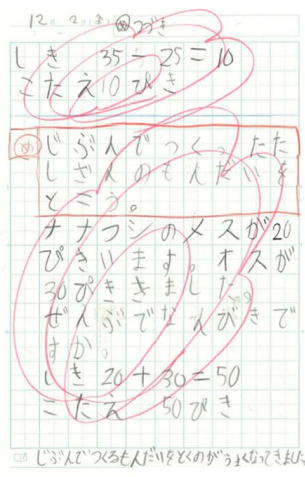 12月2日(金) め つづき
しき 35-25=10
こたえ10ぴき
め じぶんでつくったた
しざんのもんだいを
とこう。
ナナフシのメスが20
ぴきいます。オスが
30ぴききました。
ぜんぶでなんびきで
すか。
しき 20+30=50
こたえ 50ぴき
じぶんでつくるもんだいをとくのがうまくなってきました。